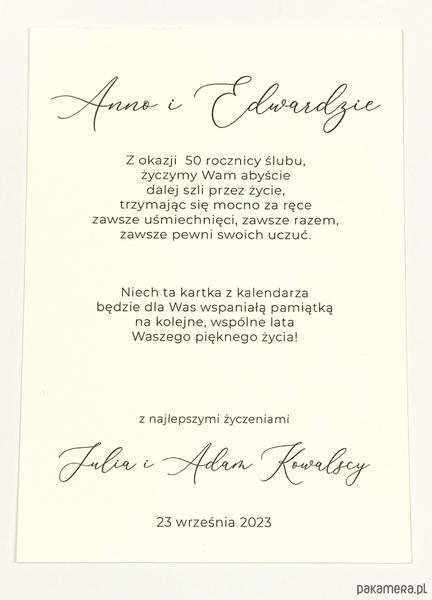 Anno i Edwardzie
Z okazji 50 rocznicy ślubu,
życzymy Wam abyście
dalej szli przez życie,
trzymając się mocno za ręce
zawsze uśmiechnięci, zawsze razem,
zawsze pewni swoich uczuć.
Niech ta kartka z kalendarza
będzie dla Was wspaniałą pamiątką
na kolejne, wspólne lata
Waszego pięknego życia!
z najlepszymi życzeniami
Julia i Adam Kowalscy
23 września 2023
pakamera.pl